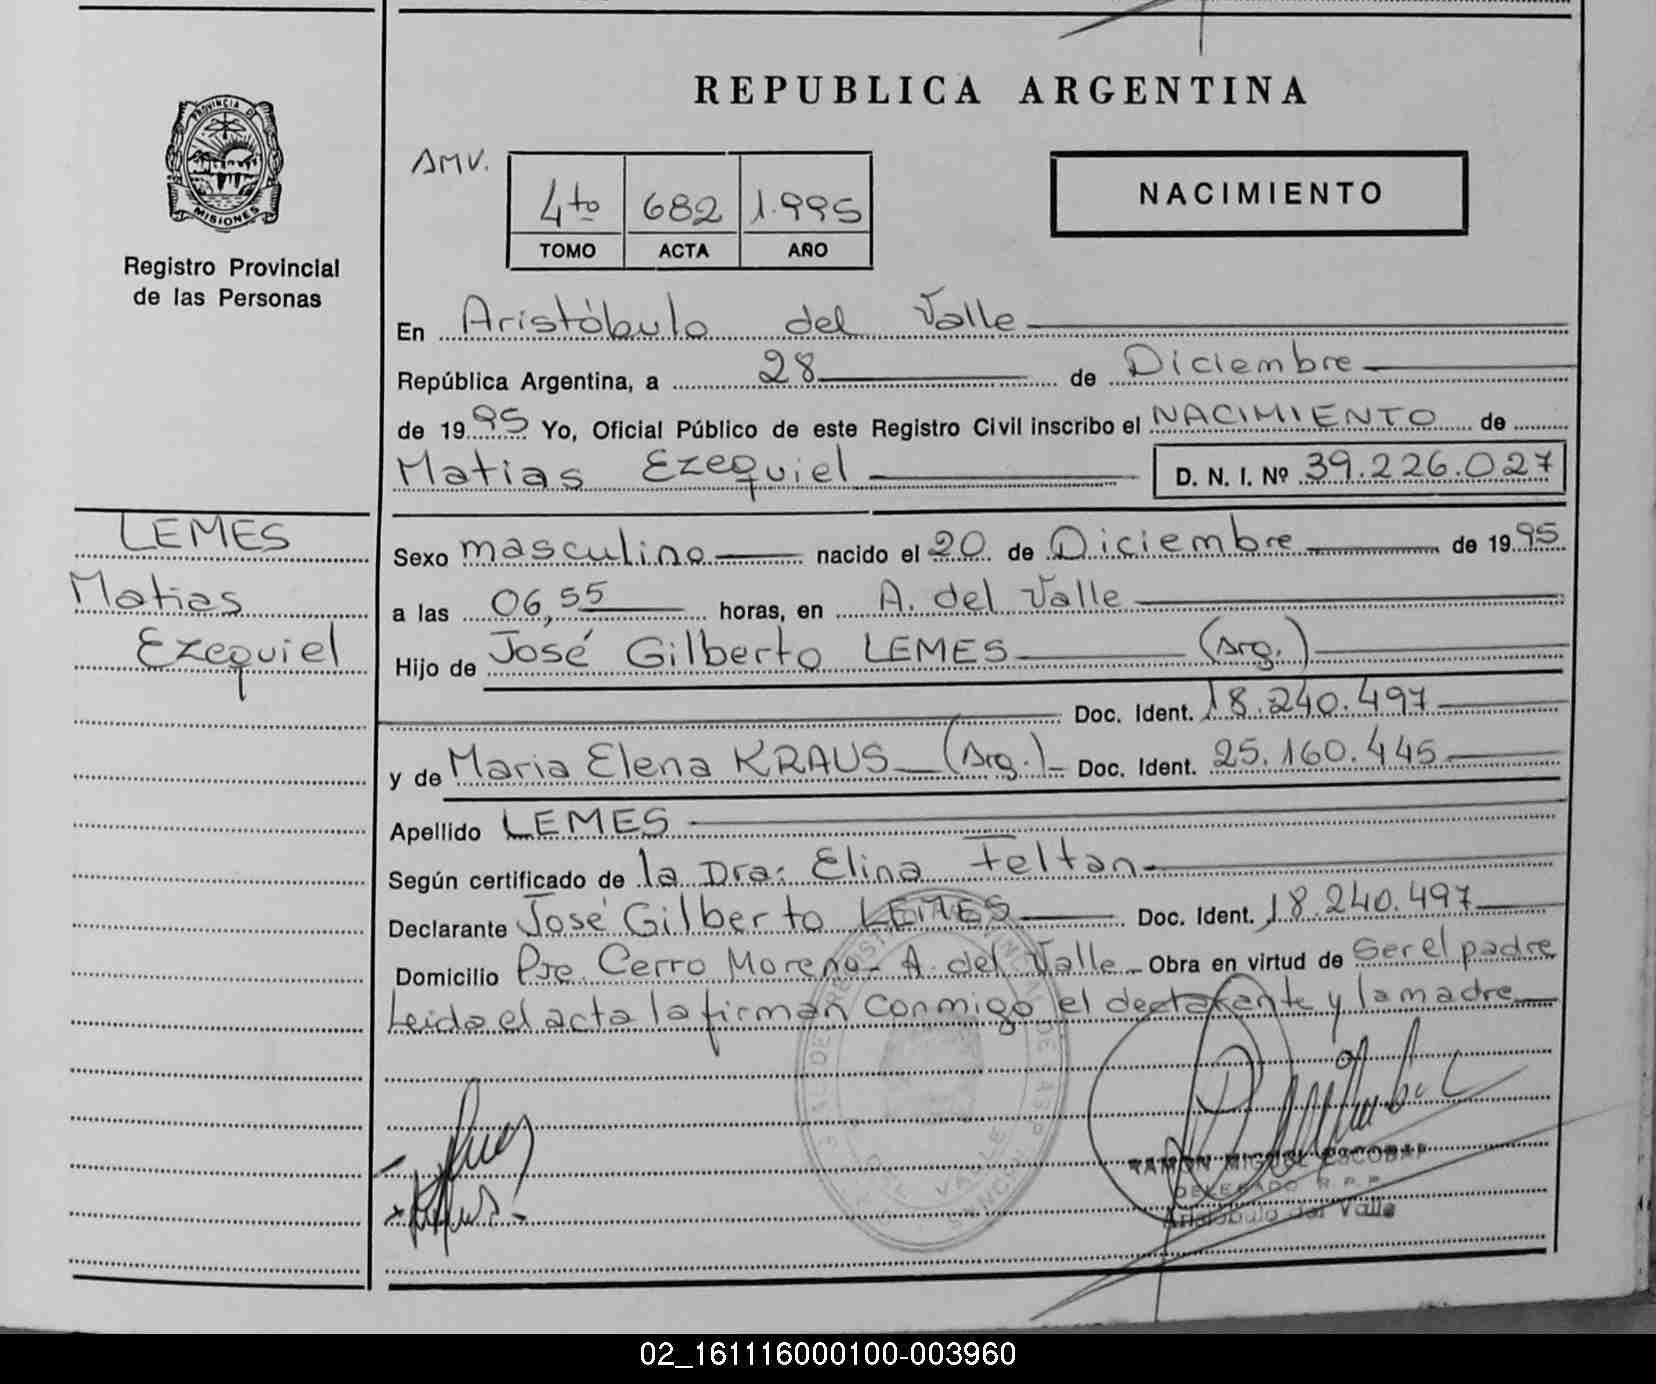 REPUBLICA ARGENTINA
PROVINCIA DE
MISIONES
Registro Provincial
de las Personas
AMV.
4to 682 1.995
TOMO ACTA AÑO
NACIMIENTO
En Aristóbulo del Valle
República Argentina, a 28 de Diciembre
de 1995 Yo, Oficial Público de este Registro Civil inscribo el NACIMIENTO de
Matias Ezequiel D. N. I. Nº 39.226.027
LEMES
Matias
Ezequiel
Sexo masculino nacido el 20 de Diciembre de 1995
a las 06,55 horas, en A. del Valle
Hijo de José Gilberto LEMES (Arg.)
Doc. Ident. 18.240.497
y de Maria Elena KRAUS (Arg.) Doc. Ident. 25.160.445
Apellido LEMES
Según certificado de la Dra: Elina Feltan
Declarante José Gilberto LEMES Doc. Ident. 18.240.497
Domicilio Pje. Cerro Moreno - A. del Valle Obra en virtud de ser el padre
Leida el acta la firman conmigo el declarante y la madre
RAMON MIGUEL ESCOBAR
DELEGADO R. P. P.
Aristóbulo del Valle
02_161116000100-003960